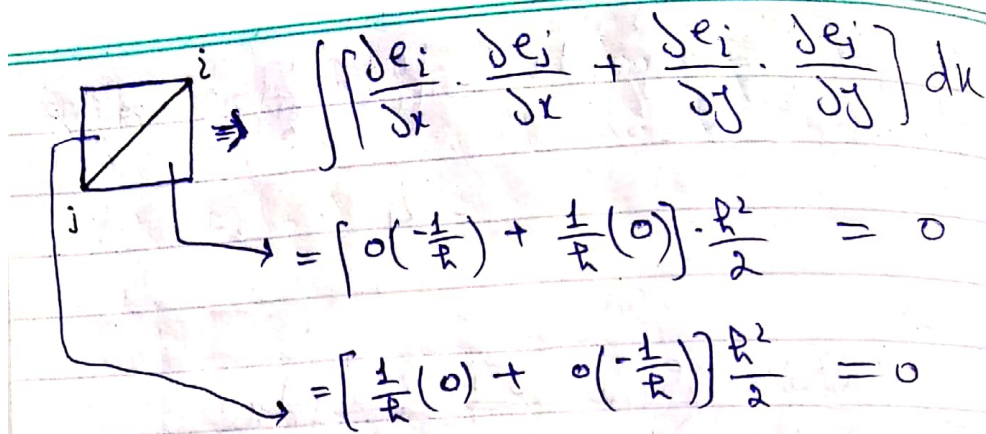 i ⇒ ∫[∂e_i/∂x · ∂e_j/∂x + ∂e_i/∂y · ∂e_j/∂y] dx
j
= [0(-1/h) + 1/h(0)] · h²/2 = 0
= [1/h(0) + 0(-1/h)] h²/2 = 0